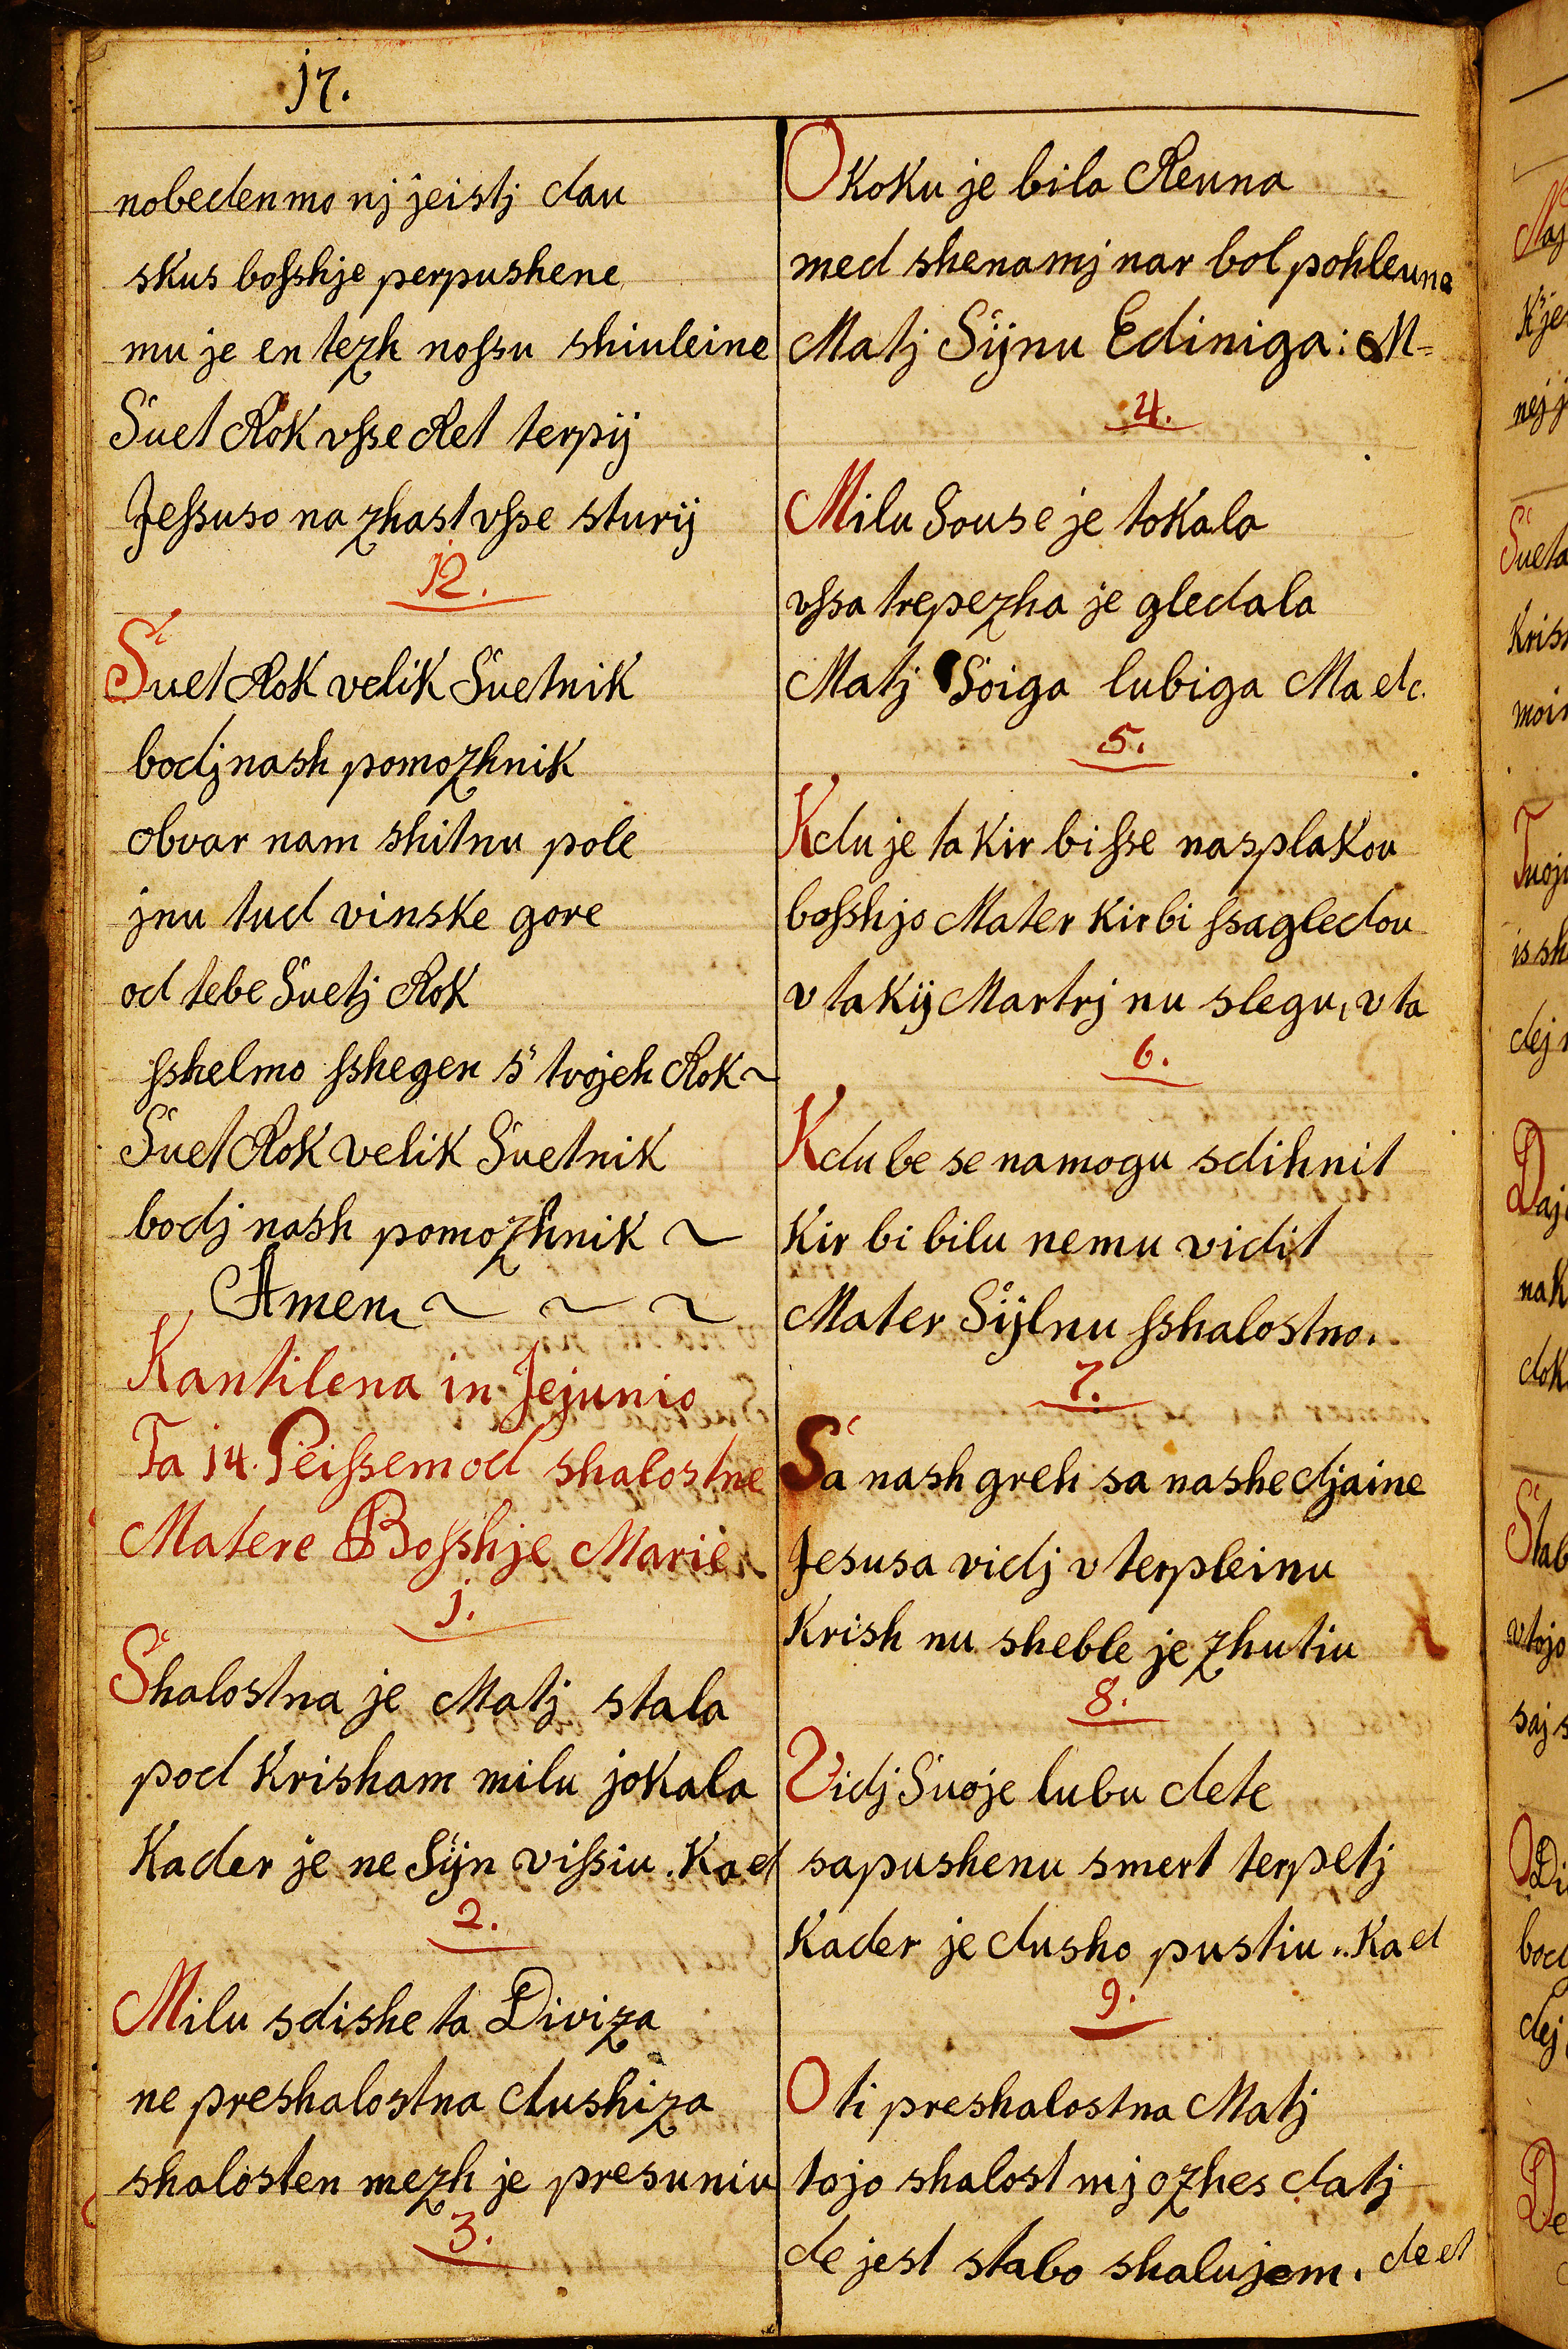 17.
nobeden mo nj jeistj dau
skus bosshje perpushene
mu je en tezh nossu shiuleine
Suet Rok vsse Ret terpij
Jessuso na zhast vsse sturij
12.
Suet Rok velik Suetnik
bodj nash pomozhnik
obvar nam shitnu pole
jnu tud vinske gore
od tebe Suetj Rok
sshelmo sshegen s' tvojeh Rok ~
Suet Rok velik Suetnik
bodj nash pomozhnik ~
Amen ~ ~ ~
Kantilena in Jejunio
Ta 14. Peissem od shalostne
Matere Bosshje Marie
1.
Shalostna je Matj stala
pod Krisham milu jokala
Kader je ne Sijn vissiu. Kad
2.
Milu sdishe ta Diviza
ne preshalostna dushiza
shalosten mezh je presuniu
3.
O koku je bila Reuna
med shenamj nar bol pohleuna
Matj Sijnu Ediniga: M=
4.
Milu Souse je tokala
vssa trepezha je gledala
Matj Soiga lubiga Ma etc.
5.
Kdu je ta kir bi sse nasplakou
bosshjo Mater kir bi ssagledou
v takij Martrj nu slegu, v ta
6.
Kdu be se namogu sdihnit
Kir bi bilu nemu vidit
Mater Sijlnu sshalostno.
7.
Sa nash greh sa nashe djaine
Jesusa vidj v terpleinu
Krish nu sheble je zhutiu
8.
Vidj Suoje lubu dete
sapushenu smert terpetj
Kader je dusho pustiu.. Kad
9.
O ti preshalostna Matj
tojo shalost mj ozhes datj
de jest stabo shalujem. de et